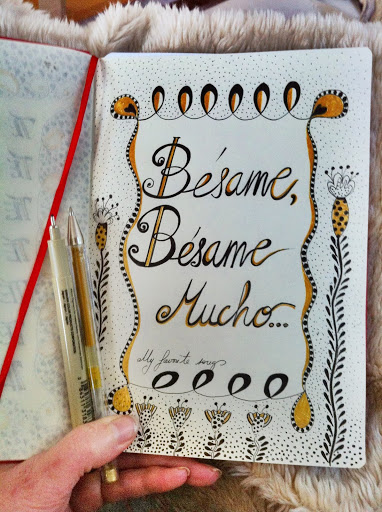 Bésame,
Bésame
Mucho...
My favorite songs